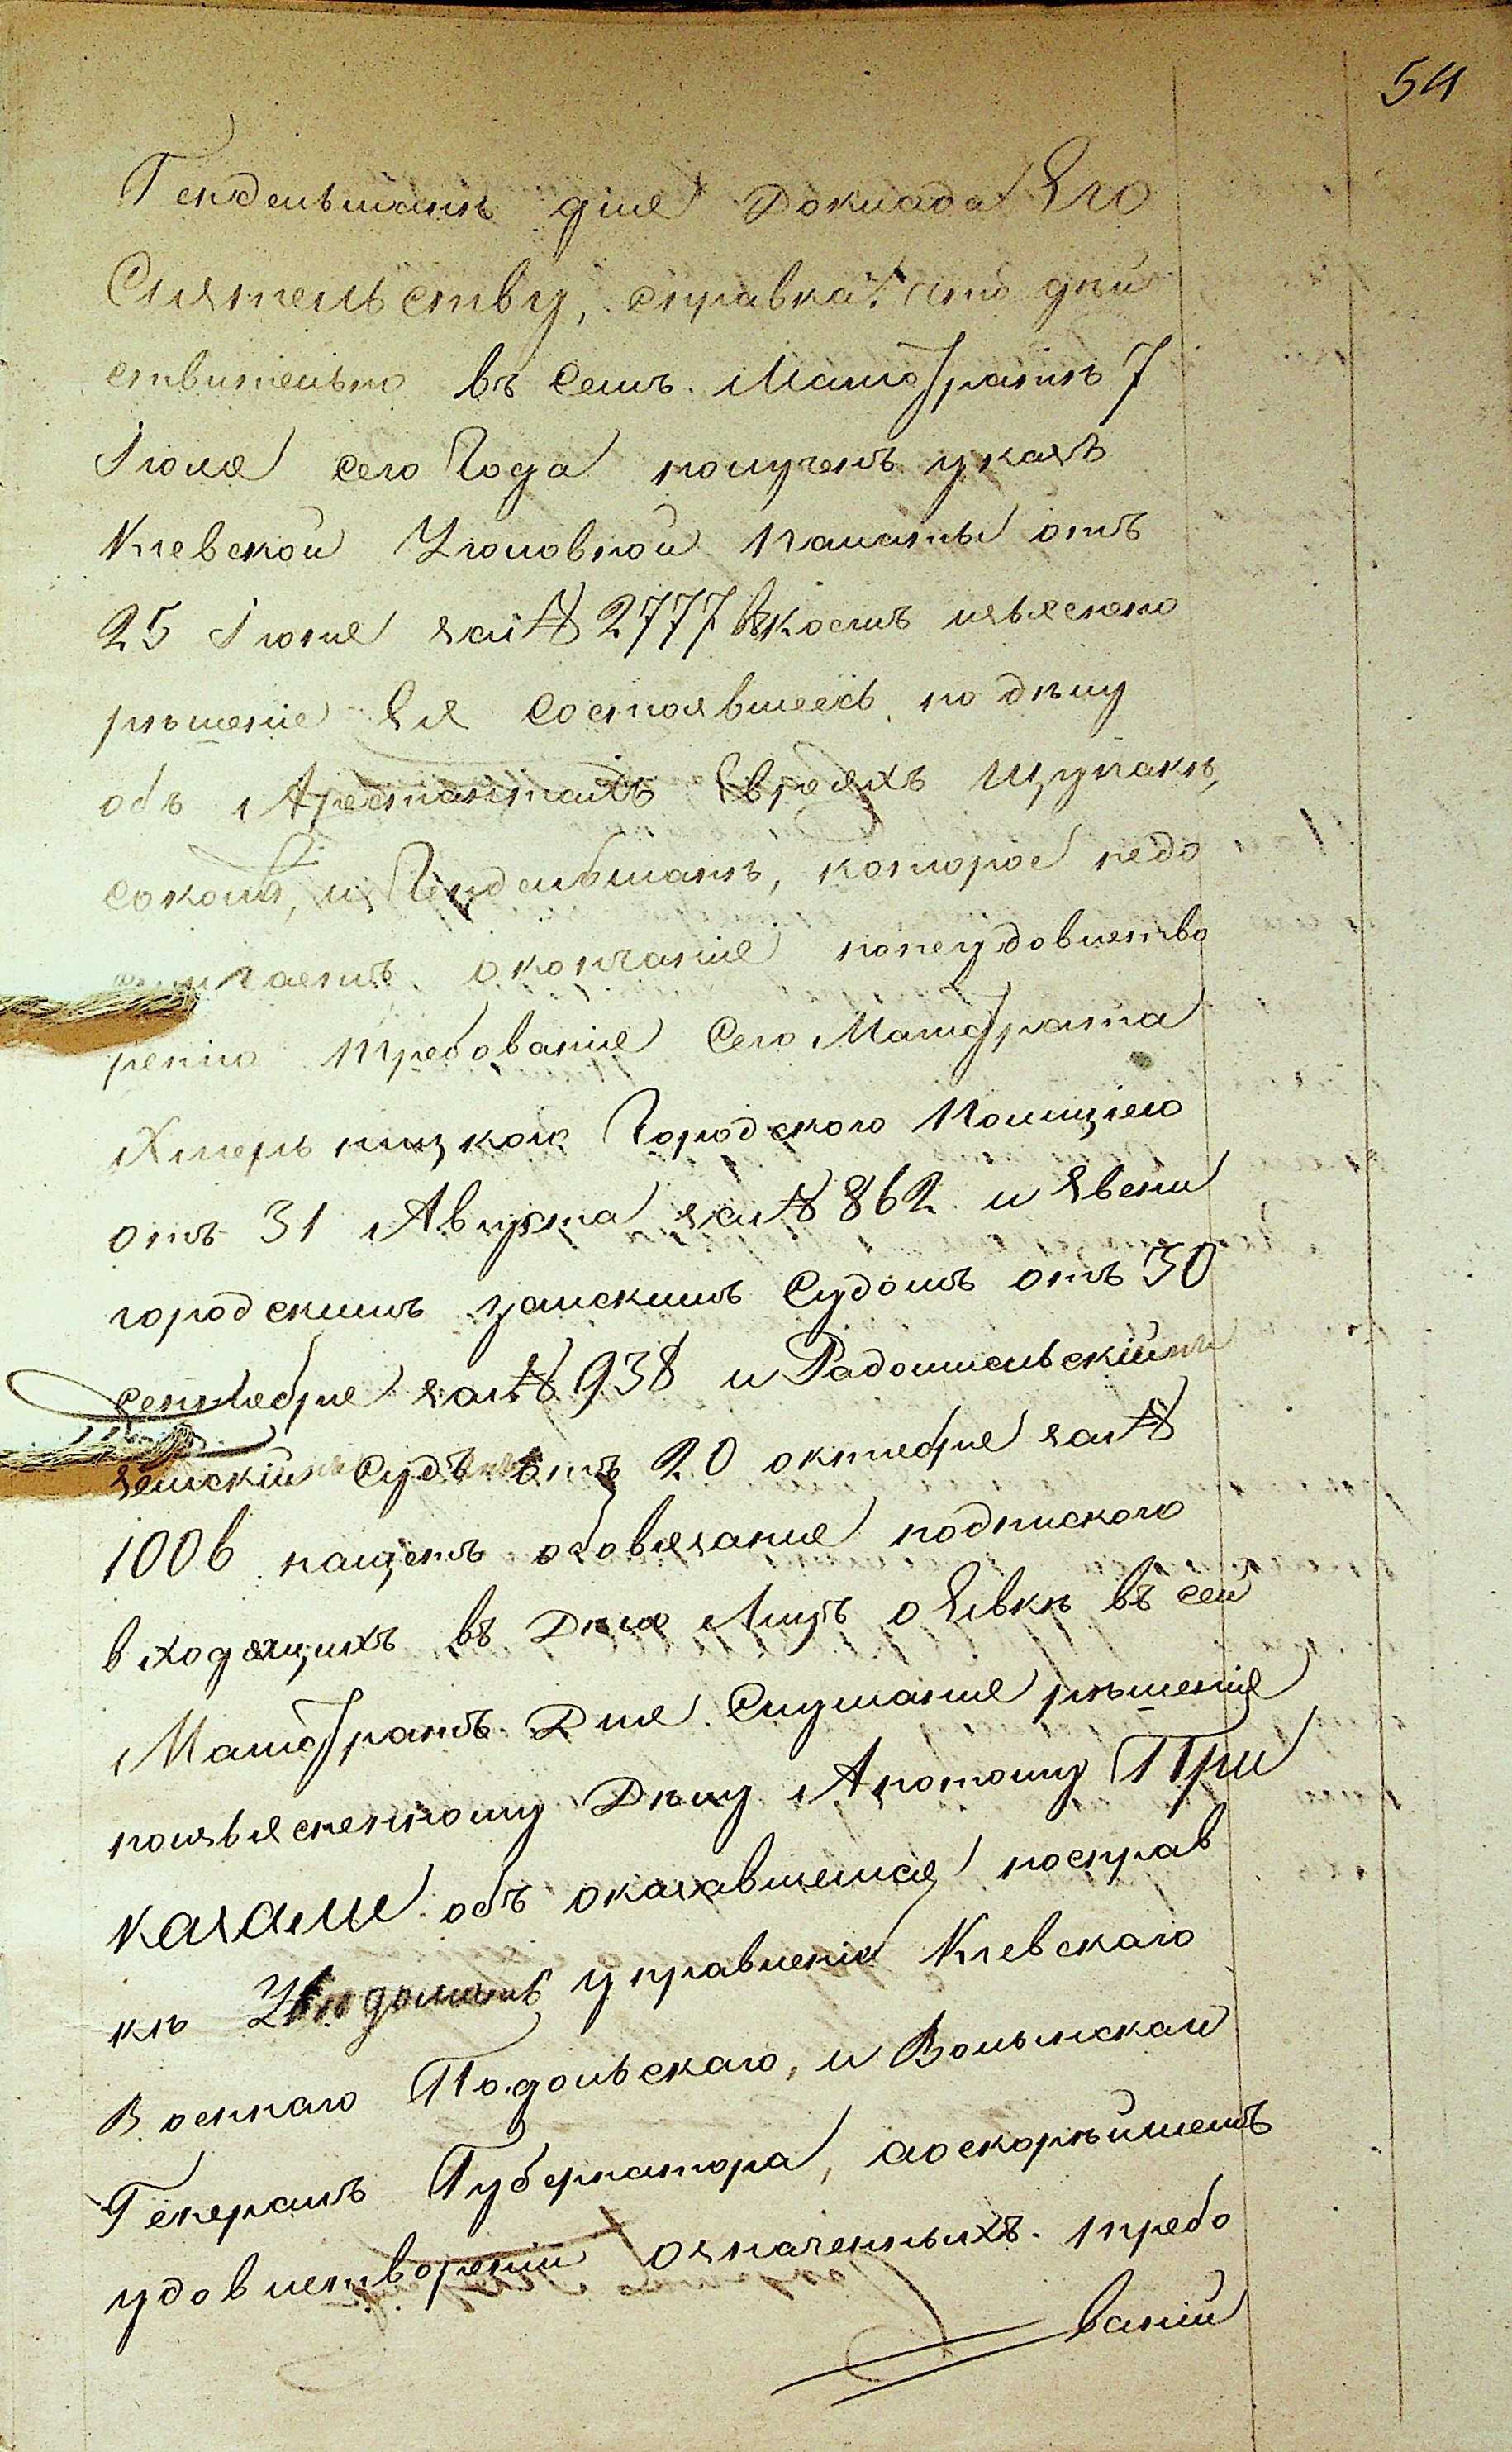 54
Гендельманъ для доклада Его
Сіятельству, справка: что дѣй
ствительно въ семъ Магистратѣ 7
Іюля сего Года полученъ указъ
Кіевской Уголовной палаты отъ
25 Іюня за № 2777 въ коемъ изъяснено
рѣшеніе Ея состоявшеесь по дѣлу
объ Арестантахъ Евреяхъ Щупакѣ,
Соколѣ, и Гендельманѣ, которое недо
стигаетъ окончанія понеудовлетво
ренію требованія Сего Магистрата
Хмельницкою Городскою Полиціею
отъ 31 Августа за № 862 и Звени
городскимъ земскимъ Судомъ отъ 30
сентября за № 938 и Радомисльскимъ
земскимъ Судомъ отъ 20 октября за №
1006 нащетъ обовязанія подпискою
входящихъ въ Дѣло Лицъ о Явкѣ въ сей
Магистратъ Для Слушанія рѣшенія
поизъясненному Дѣлу Апотому При
казали объ оказавшемся посправ
кѣ Увѣдомить управленіе Кіевскаго
Военнаго Подольскаго, и Волынскаго
Генералъ Губернатора, аоскорѣйшемъ
удовлетвореніи означенныхъ требо
ваній